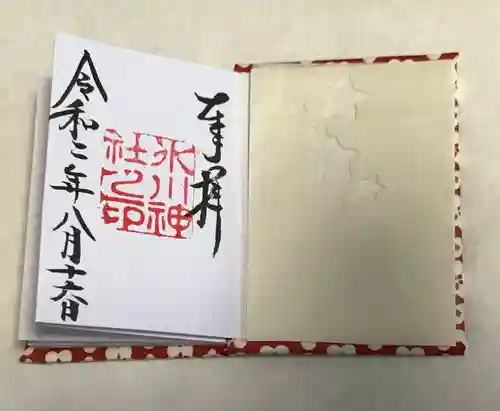 奉拝
氷川神
社之印
令和二年八月十六日